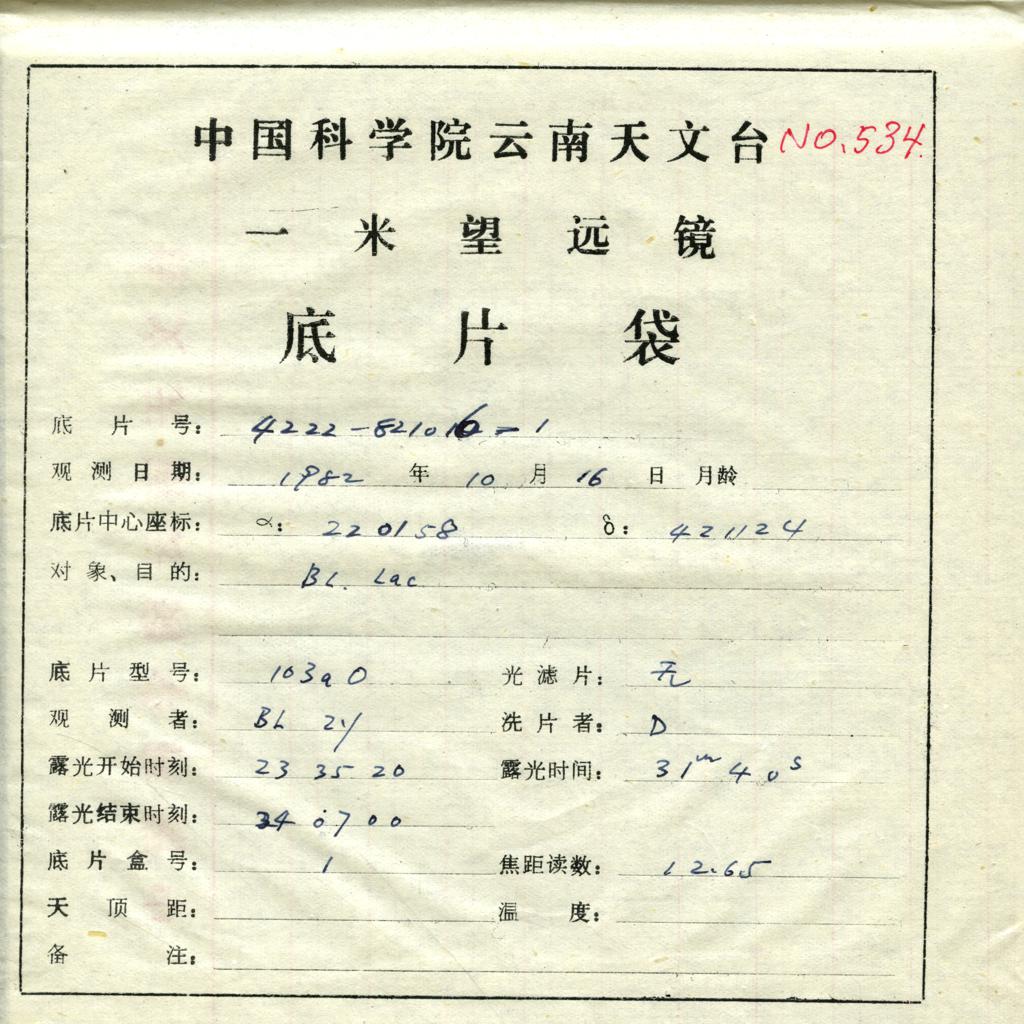 中国科学院云南天文台 NO.534.
一米望远镜
底片袋
底片号： 4222-821016-1
观测日期： 1982 年 10 月 16 日 月龄
底片中心座标： α： 220158 δ： 421124
对象、目的： BL. Lac
底片型号： 103aO 光滤片： 无
观测者： BL ZY 洗片者： D
露光开始时刻： 23 35 20 露光时间： 31ᵐ 40ˢ
露光结束时刻： 24 07 00
底片盒号： 1 焦距读数： 12.65
天顶距： 温度：
备注：